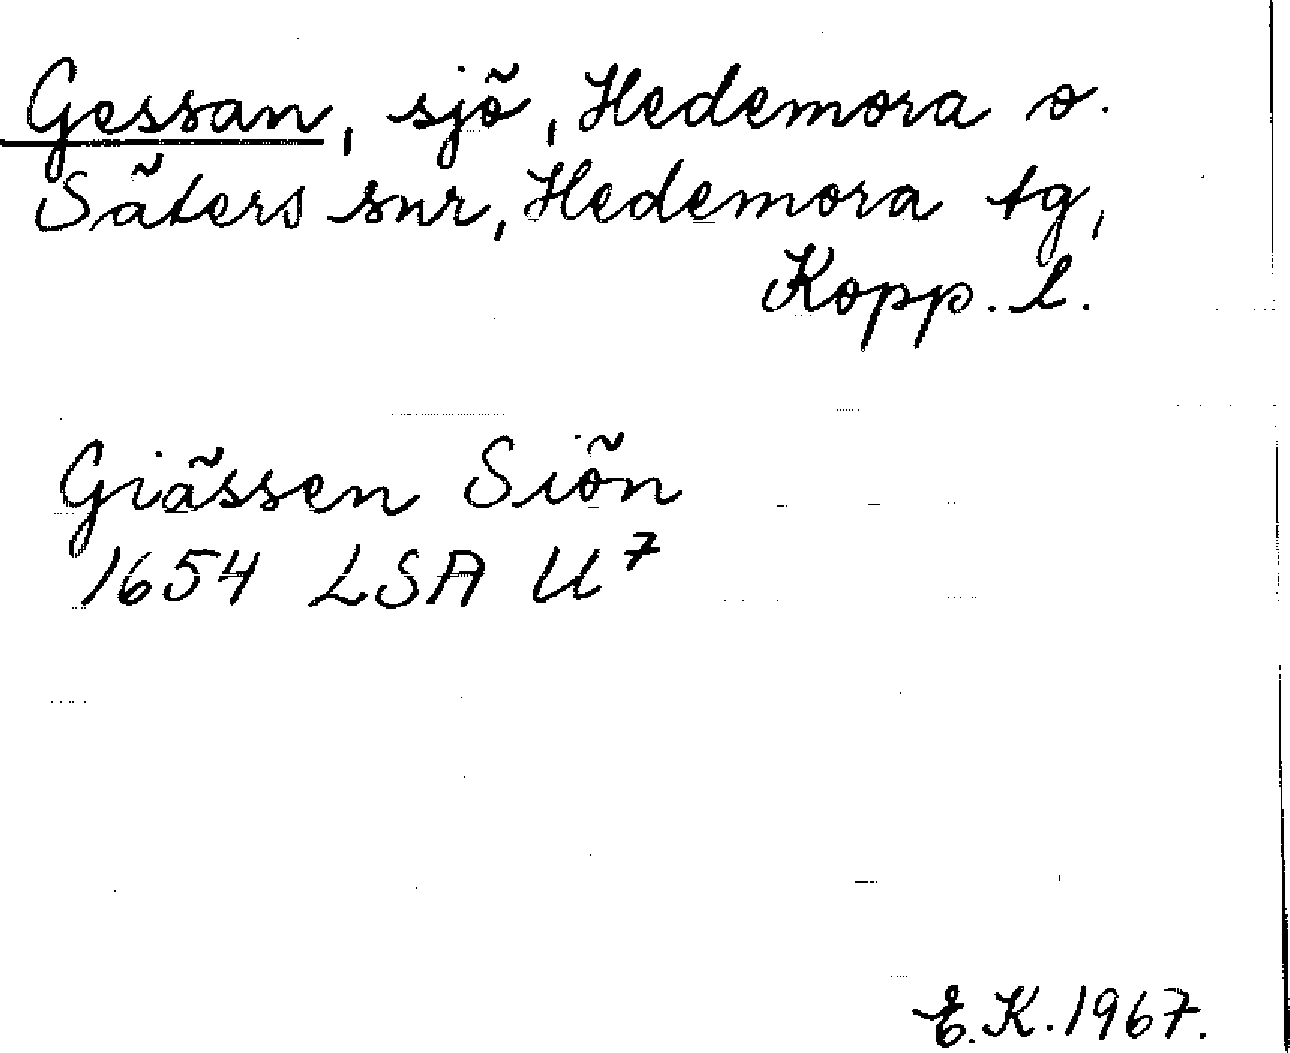 Gessan, sjö, Hedemora o.
Säters snr, Hedemora tg,
Kopp. l.
Giässen Siön
1654 LSA U⁷
E.K. 1967.